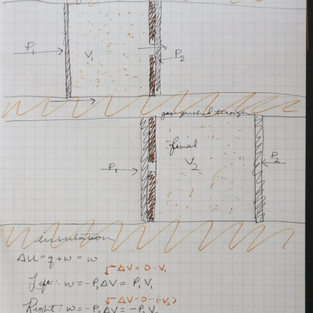 P₁
V₁
P₂
gas pushed through
final
P₁
V₂
P₂
insulation
ΔU = q + w = w
ΔV = 0 - V₁
Left: w = -P₁ΔV = P₁V₁
ΔV = 0 - (-V₂)
Right: w = -P₂ΔV = -P₂V₂